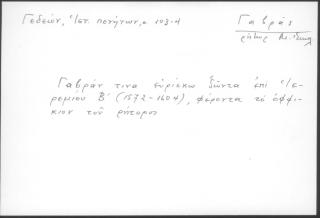 Γεδεών, Ἱστ. πενήτων, 103-4
Γαβράς
ῥήτωρ
Γαβράν τινα εὑρίσκω ζῶντα ἐπὶ Ἱε-
ρεμίου Β' (1572-1604), φέροντα τὸ ὀφφί-
κιον τοῦ ῥήτορος